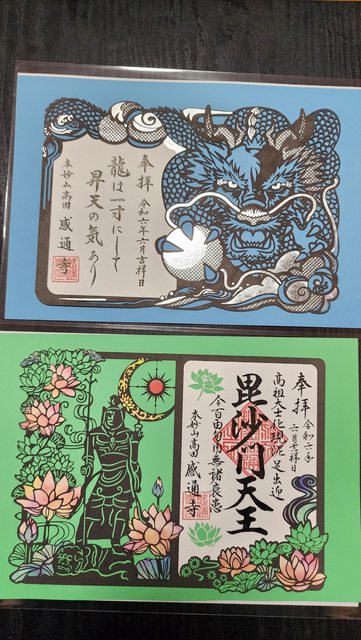 奉拝
令和六年六月吉祥日
龍は一寸にして
昇天の気あり
本妙山高田 感通寺
奉拝 令和六年
六月吉祥日
高祖大士 足出迎
毘沙門天王
令百由旬内無諸衰患
本妙山高田 感通寺